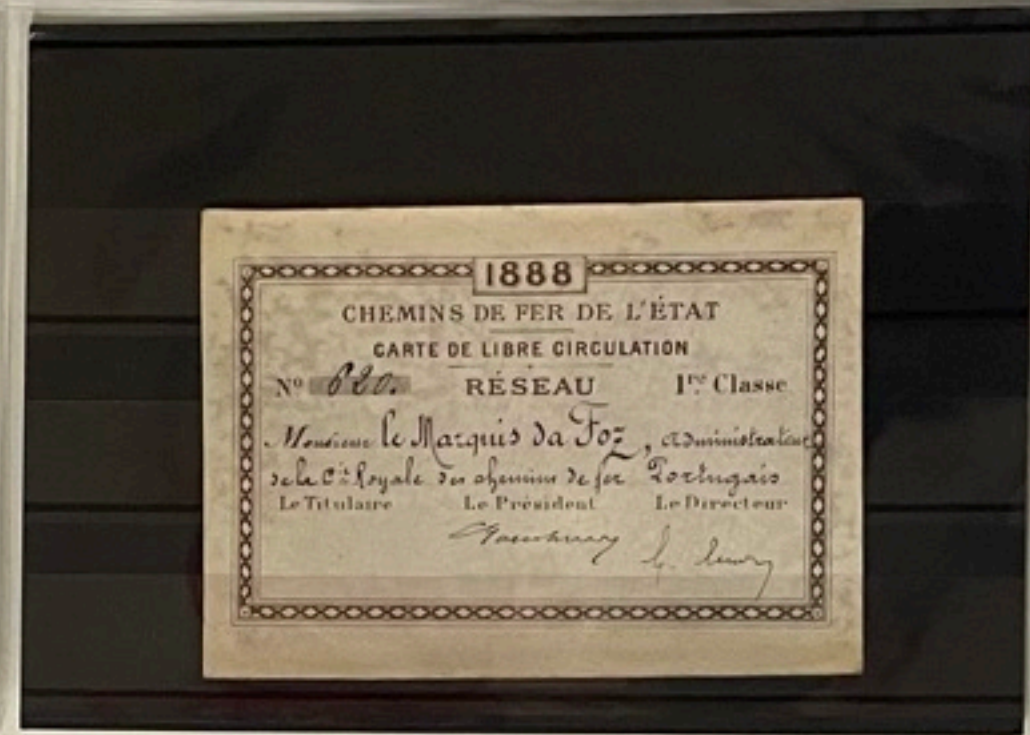 1888
CHEMINS DE FER DE L'ÉTAT
CARTE DE LIBRE CIRCULATION
Nº 620. RÉSEAU 1re Classe
Monsieur le Marquis da Foz, administrateur
de la Cie Royale des chemins de fer Portugais
Le Titulaire Le Président Le Directeur